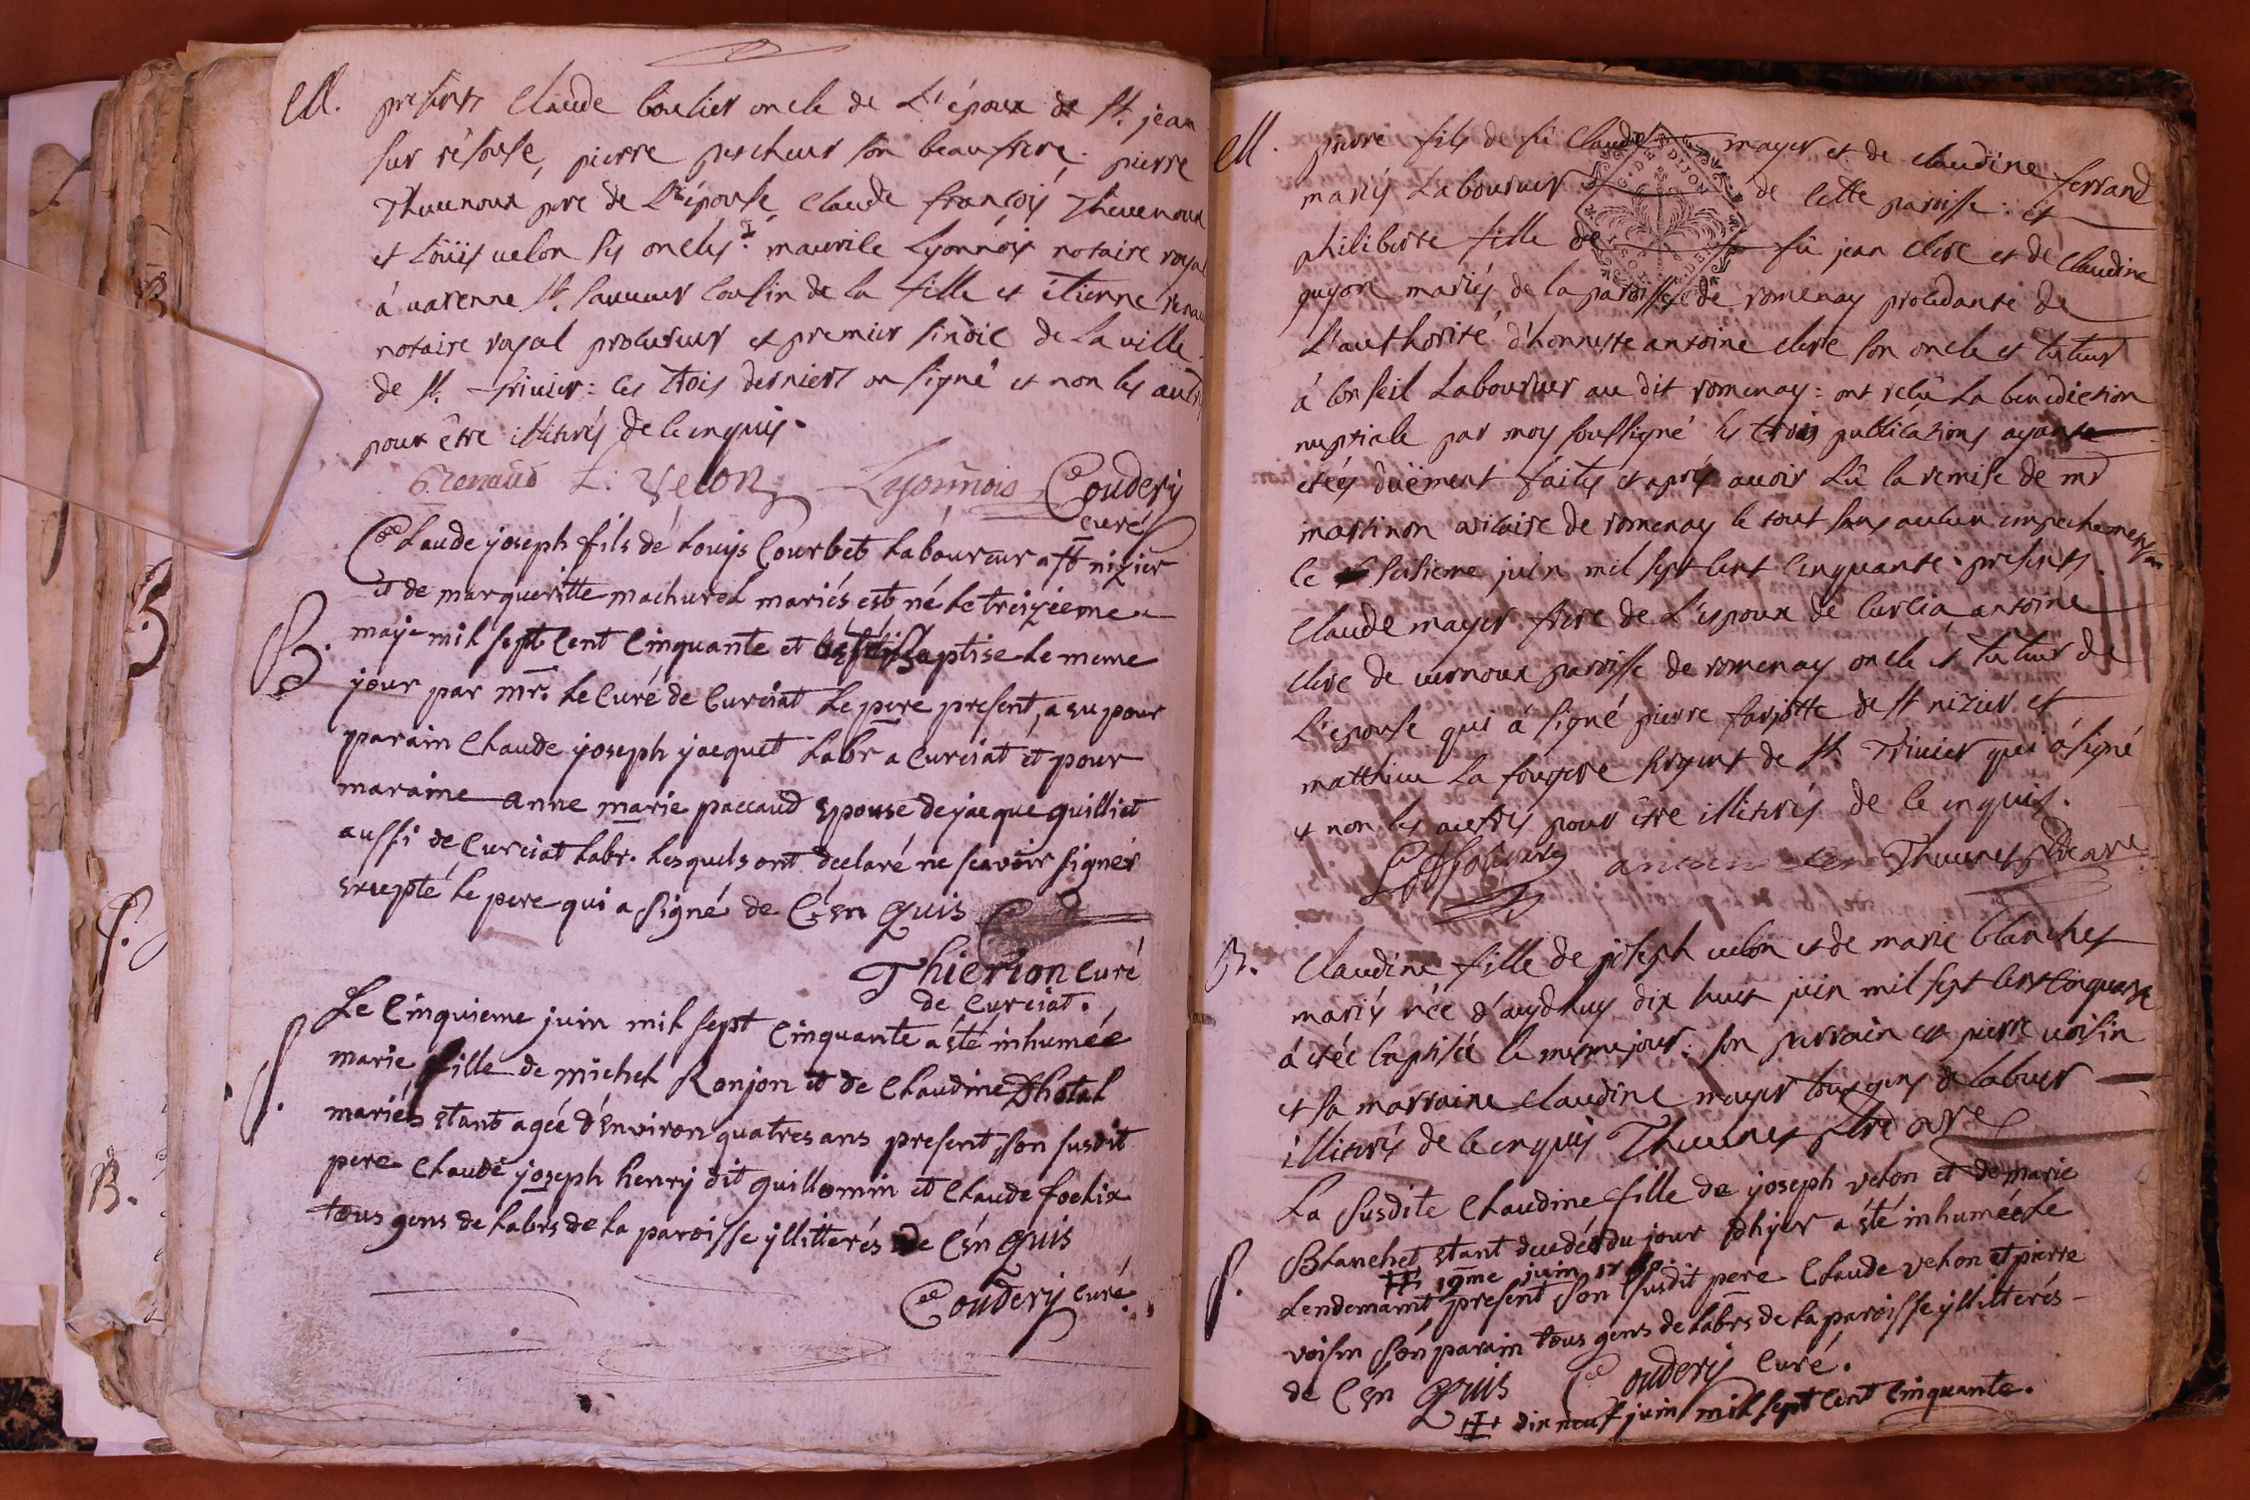 M. presents Claude boulier oncle de L'époux de St. jean
sur résouse, pierre percheur son beaufrere: pierre
Thuuenoux pere de L'épouse, Claude françois Thuuenoux
et Loüis uelon ses oncles: maurile Lyonnois notaire royal
à uarenne St. sauueur cousin de la fille et étienne renau
notaire royal procureur et premier sindic de la uille
de St. triuier: les trois derniers on signé et non les autres
pour être illiterés de ce enquis.
E. renaud L. Velon Lyonnois Coudery
curé
Claude yoseph fils de Louys Courbet Laboureur a St nizier
et de margueritte machurel mariés est né Le treizieme
B. may mil sept Cent Cinquante et baptise Le meme
jour par mr. Le Curé de Curciat Le pere present, a eu pour
parain Claude yoseph jacquet Labr a Curciat et pour
maraine anne marie paccaud Epouse de jacque guilliet
aussi de Curciat Labr. Lesquels ont declaré ne scavoir signer
Excepté Le pere qui a signé de C'En Quis
Thierion Curé
de Curciat.
Le Cinquieme juin mil sept Cinquante a été inhumée
marie fille de michel Ronjon et de Claudine Dhotal
S. mariés Etant agée d'Environ quatres ans present son susdit
pere Claude yoseph henry dit guillomin et Claude foelix
tous gens de Labrs de La paroisse yllitterés de C'En Quis
Coudery Curé
M. pierre fils de fû Claude mayer et de claudine ferrand
mariés Laboureur de cette paroisse: et
philiberte fille de fû jean clere et de Claudine
guyon mariés de la paroisse de romenay procedante de
L'authorité d'honneste antoine clere son oncle et tuteur
à conseil Laboureur au dit romenay: ont reçu La benediction
nuptiale par moy soussigné les trois publications ayants
etées dûëment faites et aprés auoir Lû la remise de mr
martinon uicaire de romenay le tout sans aucun empechement
le seisieme juin mil sept cent cinquante: presents.
Claude mayer frere de L'epoux de curcia, antoine
clere de uernoux paroisse de romenay oncle et tuteur de
L'epouse qui à signé pierre farjotte de St nizier et
matthieu La fougere sergent de St. Triuier qui à signé
et non les autres pour être illiterés de ce enquis.
Thuuenet Ptre
B. Claudine fille de joseph uelon et de marie blanchet
mariés née d'aujd'huy dix huit juin mil sept cent cinquante
à etée baptisée le meme jour: son parrain est pierre uoisin
et sa marraine claudine mayer tous gens de labeur
illiterés de ce enquis Thuuenet Ptre
La susdite Claudine fille de yoseph velon et de marie
Blanchet Etant decedée du jour dhyer a été inhumée Le
19me juin 1750.
S. Lendemaint present son susdit pere Claude velon et pierre
voisin son parain tous gens de Labrs de La paroisse yllitterés
de C'En Quis Coudery Curé.
dix neuf juin mil sept Cent Cinquante.